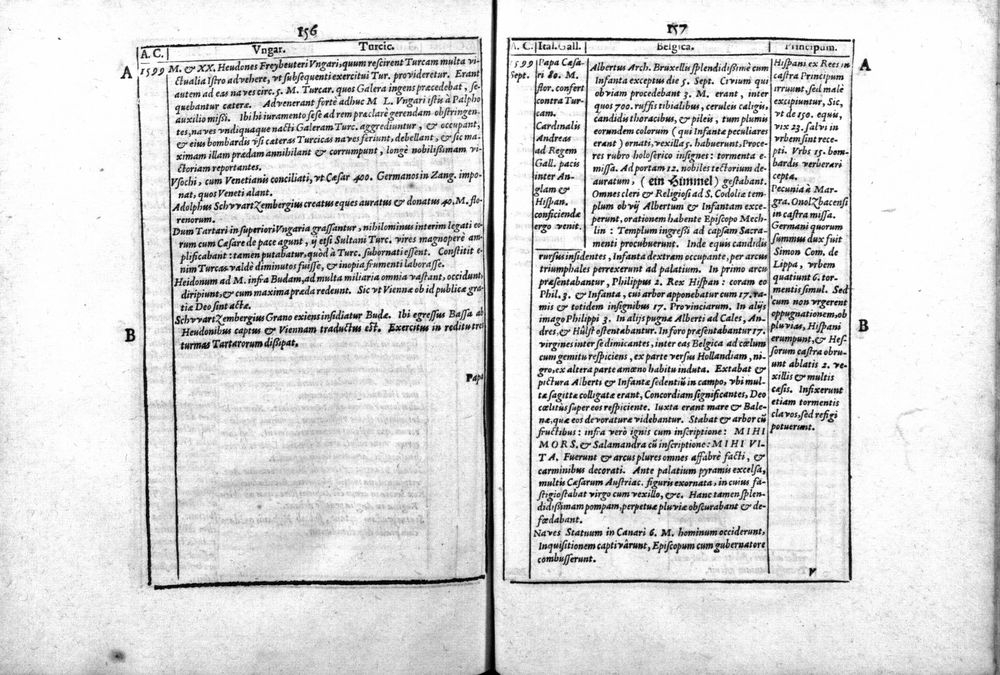 156
A. C. Vngar. Turcic.
1599 M. & XX. Heudones Freybeuteri Vngari, quum rescirent Turcam multa vi-
ctualia Istro advehere, vt subsequenti exercitui Tur. provideretur. Erant
autem ad eas naves circ. 5. M. Turcar. quos Galera ingens præcedebat, se-
quebantur cateræ. Advenerant fortè adhuc M L. Vngari istis à Palpho
auxilio missi. Ibi hi iuramento sese ad rem præclarè gerendam obstringen-
tes, naves vndiquaque nacti Galeram Turc. aggrediuntur, & occupant,
& eius bombardis vsi cateras Turcicas naves feriunt, debellant, & sic ma-
ximam illam prædam annihilant & corrumpunt, longè nobilissimam vi-
ctoriam reportantes.
Vsochi, cum Venetianis conciliati, vt Cæsar 400. Germanos in Zang. impo-
nat, quos Veneti alant.
Adolphus Schvvartzembergius creatus eques auratus & donatus 40. M. flo-
renorum.
Dum Tartari in superiori Vngaria grassantur, nihilominus interim legati eo-
rum cum Cæsare de pace agunt, ij etsi Sultani Turc. vires magnoperè am-
plificabant: tamen putabatur, quòd à Turc. subornati essent. Constitit e-
nim Turcas valdè diminutos fuisse, & inopia frumenti laborasse.
Heidonum ad M. infra Budam, ad multa miliaria omnia vastant, occidunt,
diripiunt, & cum maxima præda redeunt. Sic vt Viennæ ob id publicæ gra-
tiæ Deo sint actæ.
Schvvartzembergius Grano exiens insidiatur Budæ. Ibi egressus Bassa ab
Heudonibus captus & Viennam traductus est. Exercitus in reditu tres
turmas Tartarorum dissipat.
A
B
Papa
157
A. C. Ital. Gall. Belgica. Principum.
1599
Sept.
Papa Cæsa-
ri 80. M.
flor. confert
contra Tur-
cam.
Cardinalis
Andreas
ad Regem
Gall. pacis
inter An-
glam &
Hispan.
conficiendæ
ergo venit.
Albertus Arch. Bruxellis splendidissimè cum
Infanta exceptus die 5. Sept. Civium qui
obviam procedebant 3. M. erant, inter
quos 700. ruffis tibialibus, ceruleis caligis,
candidis thoracibus, & pileis, tum plumis
eorundem colorum (qui Infantæ peculiares
erant) ornati, vexilla 5. habuerunt, Proce-
res rubro holoserico insignes: tormenta e-
missa. Ad portam 12. nobiles tectorium de-
auratum, (ein Himmel) gestabant.
Omnes cleri & Religiosi ad S. Codolia tem-
plum ob vijs Albertum & Infantam exce-
perunt, orationem habente Episcopo Mech-
lin: Templum ingressi ad capsam Sacra-
menti procubuerunt. Inde equis candidis
rursus insidentes, infanta dextram occupante, per arcus
triumphales perrexerunt ad palatium. In primo arcu
præsentabantur, Philippus 2. Rex Hispan: coram eo
Phil. 3. & Infanta, cui arbor apponebatur cum 17. ra-
mis & totidem insignibus 17. Provinciarum. In alijs
imago Philippi 3. In alijs pugna Alberti ad Cales, An-
dres, & Hülst ostentabantur. In foro præsentabantur 17.
virgines inter se dimicantes, inter eas Belgica ad cœlum
cum gemitu respiciens, ex parte versus Hollandiam, ni-
gro, ex altera parte amœno habitu induta. Extabat &
pictura Alberti & Infantæ sedentiũ in campo, vbi mul-
tæ sagittæ colligatæ erant, Concordiam significantes, Deo
cœlitus super eos respiciente. Iuxta erant mare & Bale-
næ, quæ eos devoraturæ videbantur. Stabat & arbor cũ
fructibus: infra verò ignis cum inscriptione: MIHI
MORS. & Salamandra cũ inscriptione: MIHI VI-
TA. Fuerunt & arcus plures omnes affabrè facti, &
carminibus decorati. Ante palatium pyramis excelsa,
multis Cæsarum Austriac. figuris exornata, in cuius fa-
stigio stabat virgo cum vexillo, &c. Hanc tamen splen-
didissimam pompam, perpetuæ pluviæ obscurabant & de-
fœdabant.
Naves Statuum in Canari 6. M. hominum occiderunt,
Inquisitionem captivârunt, Episcopum cum gubernatore
combusserunt.
Hispani ex Rees in
castra Principum
irruunt, sed malè
excipiuntur, Sic,
vt de 150. equit,
vix 23. salvi in
vrbem sint rece-
pti. Vrbs 15. bom-
bardis verberari
cepta.
Pecunia à Mar-
gra. Onoltzbacensi
in castra missa.
Germani quorum
summus dux fuit
Simon Com. de
Lippa, vrbem
quatiunt 6. tor-
mentis simul. Sed
cum non vrgerent
oppugnationem, ob
pluvias, Hispani
erumpunt, & Hes-
sorum castra obru-
unt ablatis 2. ve-
xillis & multis
cæsis. Infixerunt
etiam tormentis
clavos, sed refigi
potuerunt.
A
B
V